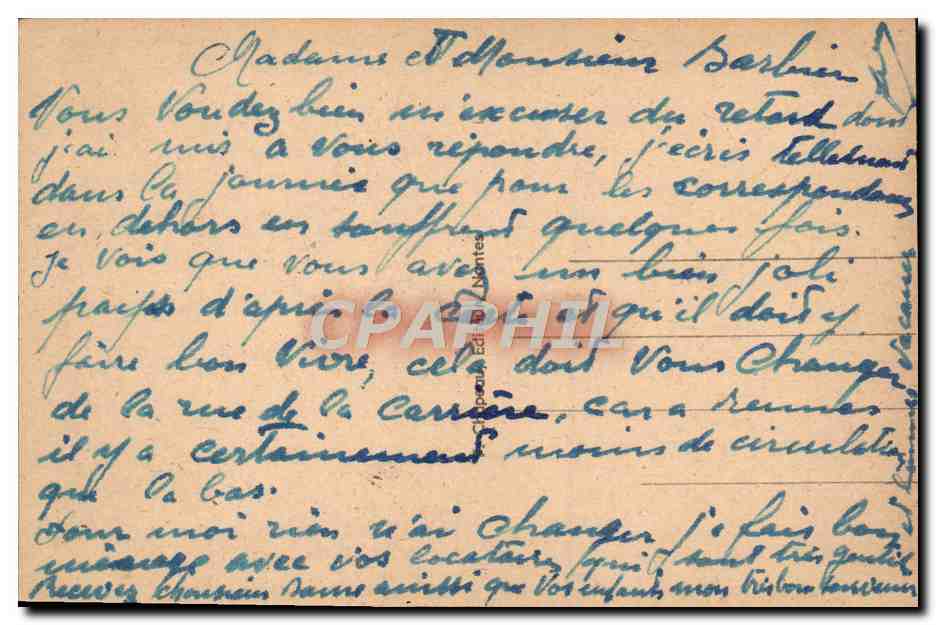 Madame et Monsieur Barbier
Vous Voudez bien m'excuser du retard dont
j'ai mis a vous répondre, j'ecris tellement
dans la journée que pour les correspondances
en dehors en souffrent quelques fois.
Je vois que vous avez un bien joli
pays d'après la carte et qu'il doit y
faire bon Vivre, cela doit Vous Changer
de la rue de la Carrière, car a rennes
il y a certainement moins de circulation
que la bas.
Pour moi rien n'ai Changer je fais bon
ménage avec vos locataires qui sont très gentils
Recevez Monsieur Dame ainssi que Vos enfants mon très bon souvenir
et bonnes Vacances
Chapeau, Editeur, Nantes
CPAPHIL